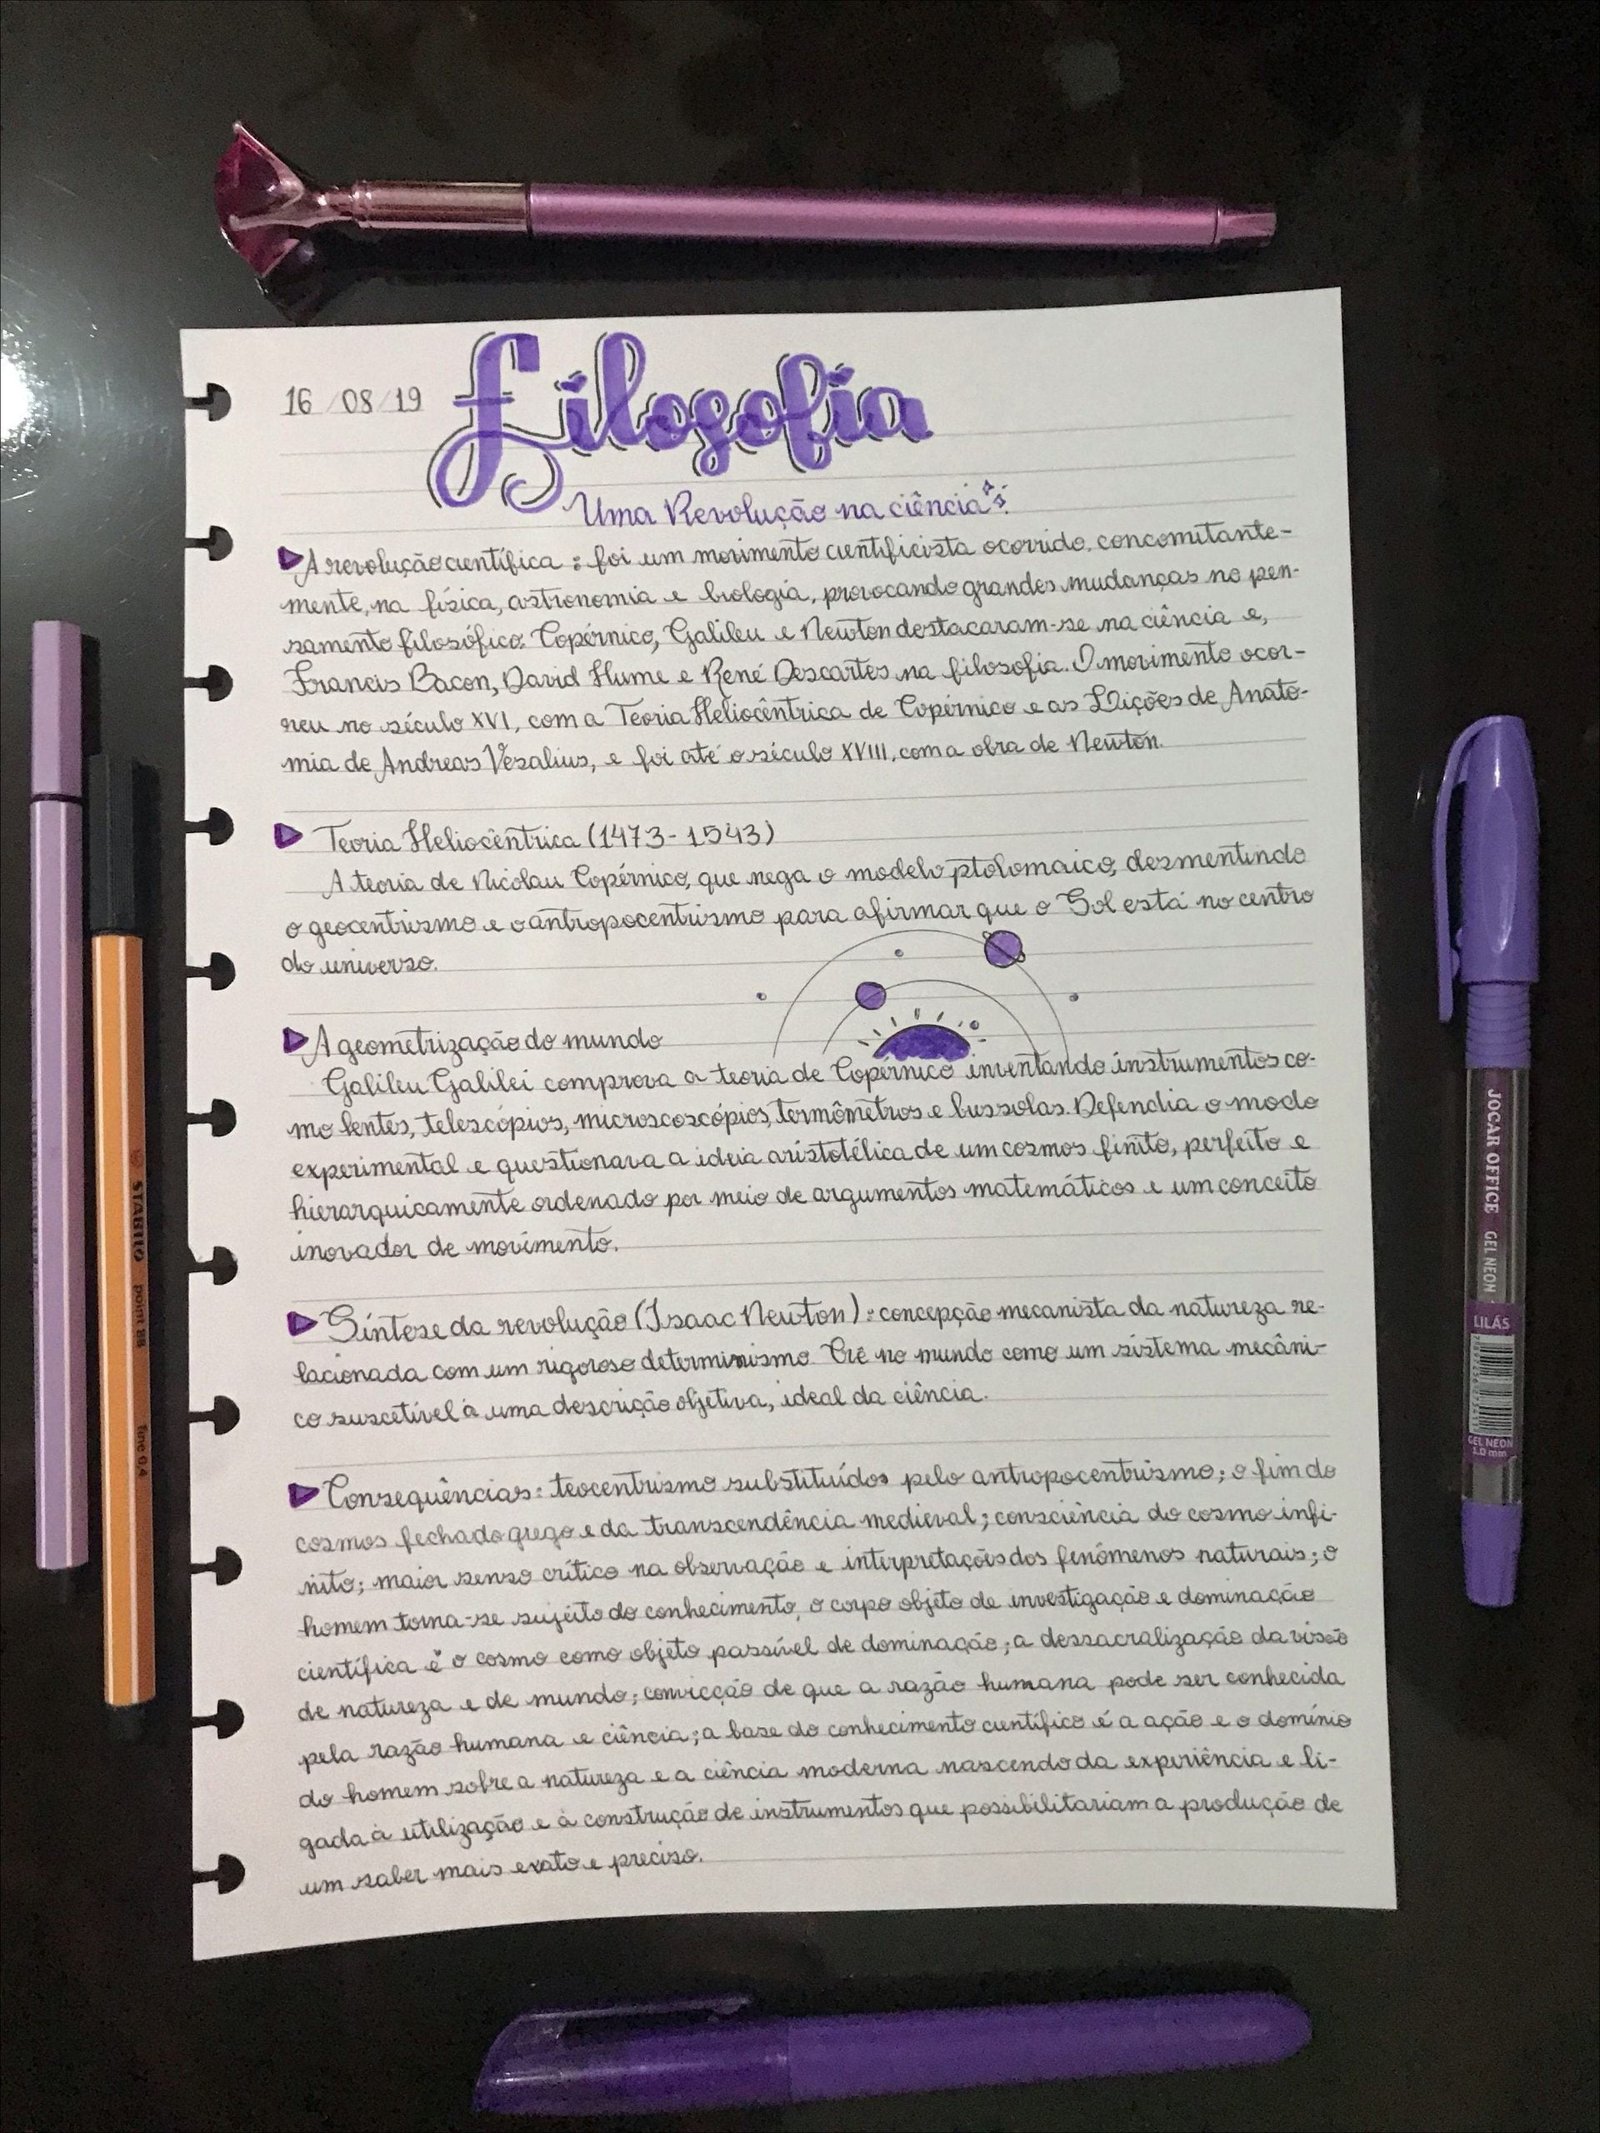 16/08/19
Filosofia
Uma Revolução na ciência
A revolução científica: foi um movimento cientificista ocorrido, concomitante-
mente, na física, astronomia e biologia, provocando grandes mudanças no pen-
samento filosófico. Copérnico, Galileu e Newton destacaram-se na ciência e,
Francis Bacon, David Hume e René Descartes na filosofia. O movimento ocor-
reu no século XVI, com a Teoria Heliocêntrica de Copérnico e as Lições de Anato-
mia de Andreas Vesalius, e foi até o século XVIII, com a obra de Newton.
Teoria Heliocêntrica (1473-1543)
A teoria de Nicolau Copérnico, que nega o modelo ptolomaico, desmentindo
o geocentrismo e o antropocentrismo para afirmar que o Sol está no centro
do universo.
A geometrização do mundo
Galileu Galilei comprova a teoria de Copérnico inventando instrumentos co-
mo lentes, telescópios, microscoscópios, termômetros e bussolas. Defendia o modo
experimental e questionava a ideia aristotélica de um cosmos finito, perfeito e
hierarquicamente ordenado por meio de argumentos matemáticos e um conceito
inovador de movimento.
Síntese da revolução (Isaac Newton): concepção mecanista da natureza re-
lacionada com um rigoroso determinismo. Crê no mundo como um sistema mecâni-
co suscetível à uma descrição objetiva, ideal da ciência.
Consequências: teocentrismo substituídos pelo antropocentrismo; o fim do
cosmos fechado grego e da transcendência medieval; consciência do cosmo infi-
nito; maior senso crítico na observação e interpretações dos fenômenos naturais; o
homem torna-se sujeito do conhecimento, o corpo objeto de investigação e dominação
científica e o cosmo como objeto passível de dominação; a dessacralização da visão
de natureza e de mundo; convicção de que a razão humana pode ser conhecida
pela razão humana e ciência; a base do conhecimento científico é a ação e o domínio
do homem sobre a natureza e a ciência moderna nascendo da experiência e li-
gada à utilização e à construção de instrumentos que possibilitariam a produção de
um saber mais exato e preciso.
STABILO point 88 fine 0,4
JOCAR OFFICE GEL NEON
LILÁS
GEL NEON
1.0 mm